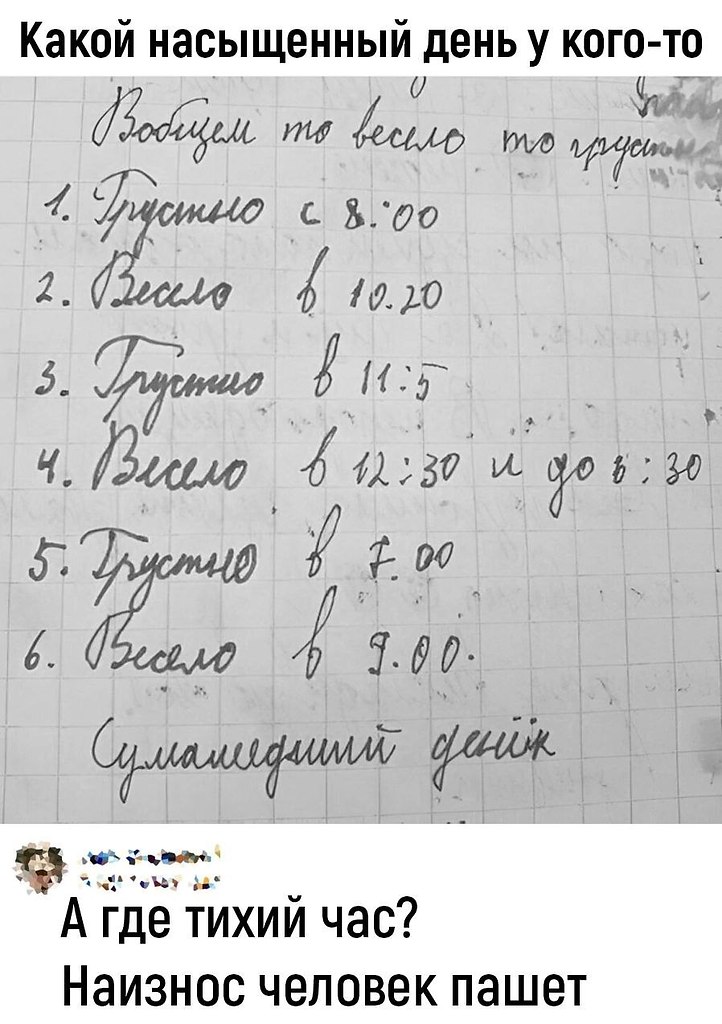 Какой насыщенный день у кого-то
Вобщем то весело то грустно
1. Грустно с 8:00
2. Весело в 10.20
3. Грустно в 11:5
4. Весело в 12:30 и до 6:30
5. Грустно в 7.00
6. Весело в 9.00.
Сумашедший денёк
А где тихий час?
Наизнос человек пашет